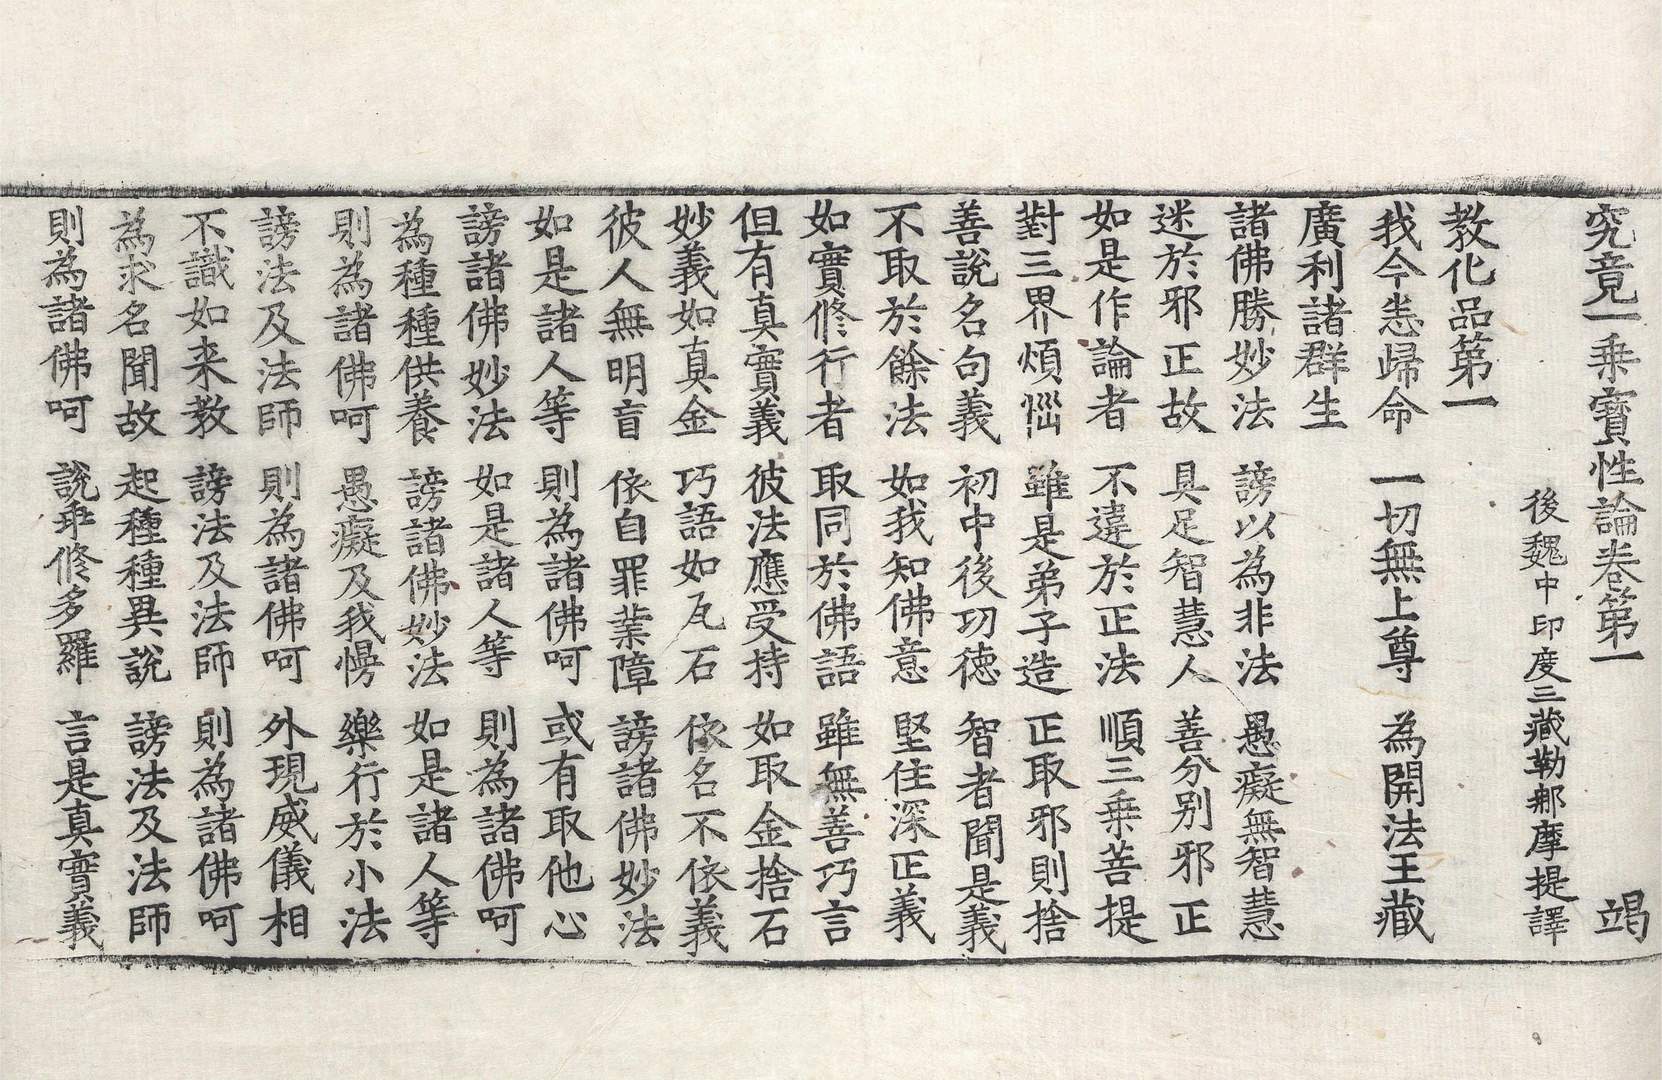 究竟一乗寶性論卷第一 竭
後魏中印度三藏勒那摩提譯
教化品第一
我今悉歸命 一切無上尊 為開法王藏
廣利諸群生
諸佛勝妙法 謗以為非法 愚癡無智慧
迷於邪正故 具足智慧人 善分別邪正
如是作論者 不違於正法 順三乗菩提
對三界煩惱 雖是弟子造 正取邪則捨
善說名句義 初中後功徳 智者聞是義
不取於餘法 如我知佛意 堅住深正義
如實修行者 取同於佛語 雖無善巧言
但有真實義 彼法應受持 如取金捨石
妙義如真金 巧語如瓦石 依名不依義
彼人無明盲 依自罪業障 謗諸佛妙法
如是諸人等 則為諸佛呵 或有取他心
謗諸佛妙法 如是諸人等 則為諸佛呵
為種種供養 謗諸佛妙法 如是諸人等
則為諸佛呵 愚癡及我慢 樂行於小法
謗法及法師 則為諸佛呵 外現威儀相
不識如来教 謗法及法師 則為諸佛呵
為求名聞故 起種種異說 謗法及法師
則為諸佛呵 說乖修多羅 言是真實義